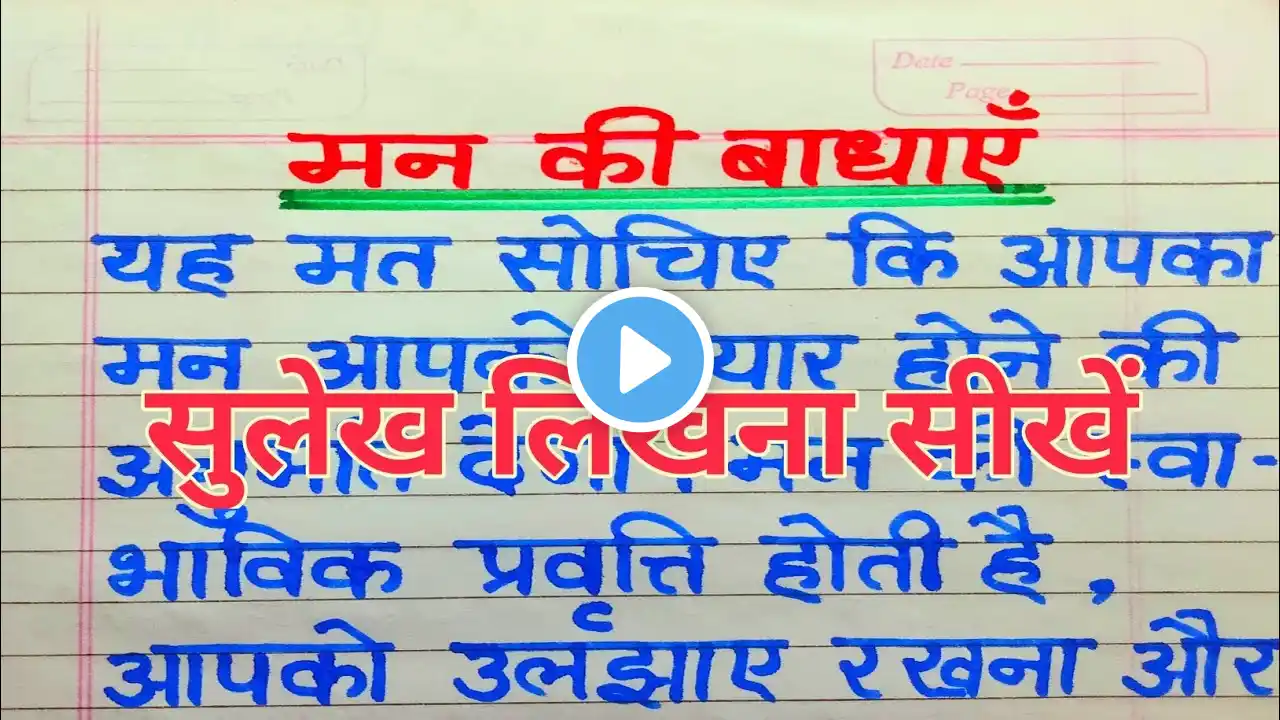 Date
Page
मन की बाधाएँ
यह मत सोचिए कि आपका
मन आपको यार होने की
सुलेख लिखना सीखें
देगा मन की स्वा-
भाविक प्रवृत्ति होती है,
आपको उलझाए रखना और